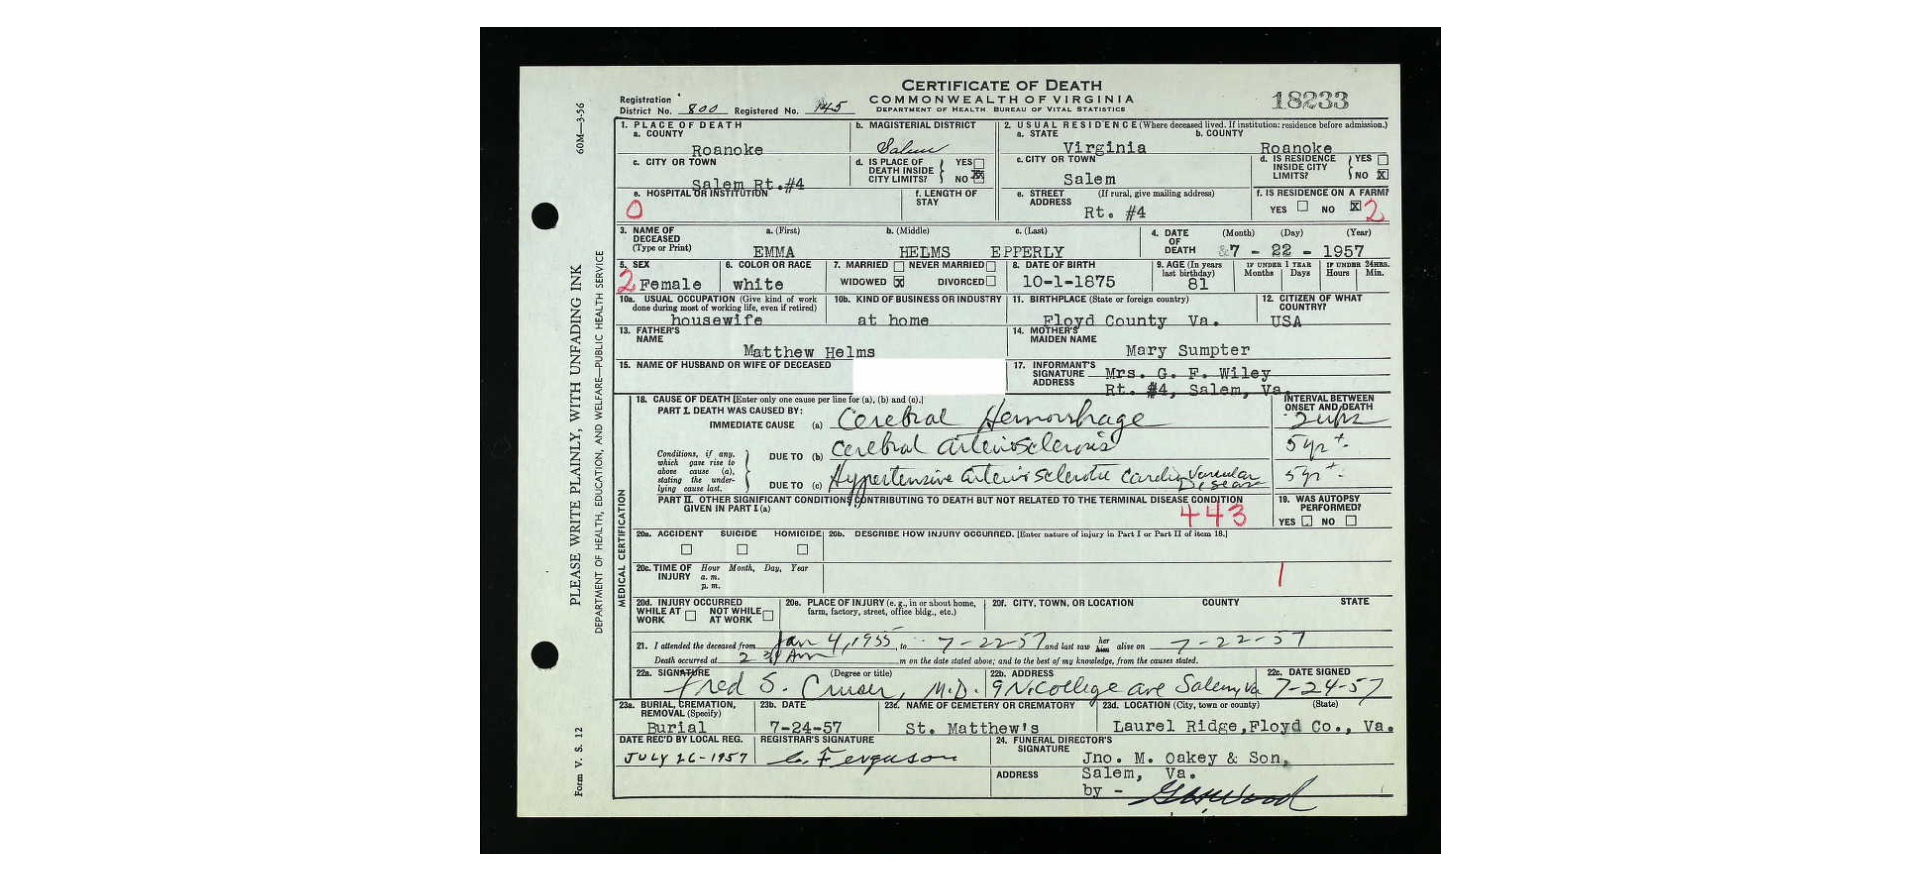 CERTIFICATE OF DEATH
COMMONWEALTH OF VIRGINIA
DEPARTMENT OF HEALTH BUREAU OF VITAL STATISTICS
18233
Registration District No. 800 Registered No. 145
60M—3-56
PLEASE WRITE PLAINLY, WITH UNFADING INK
DEPARTMENT OF HEALTH, EDUCATION, AND WELFARE—PUBLIC HEALTH SERVICE
Form V. S. 12
1. PLACE OF DEATH
a. COUNTY Roanoke
b. MAGISTERIAL DISTRICT Salem
2. USUAL RESIDENCE (Where deceased lived. If institution: residence before admission.)
a. STATE Virginia
b. COUNTY Roanoke
c. CITY OR TOWN Salem Rt.#4
d. IS PLACE OF DEATH INSIDE CITY LIMITS? YES NO X
c. CITY OR TOWN Salem
d. IS RESIDENCE INSIDE CITY LIMITS? YES NO X
e. HOSPITAL OR INSTITUTION 0
f. LENGTH OF STAY
e. STREET ADDRESS (If rural, give mailing address) Rt. #4
f. IS RESIDENCE ON A FARM? YES NO X 2
3. NAME OF DECEASED (Type or Print)
a. (First) EMMA
b. (Middle) HELMS
c. (Last) EPPERLY
4. DATE OF DEATH (Month) (Day) (Year) 7 - 22 - 1957
5. SEX 2 Female
6. COLOR OR RACE white
7. MARRIED NEVER MARRIED WIDOWED X DIVORCED
8. DATE OF BIRTH 10-1-1875
9. AGE (In years last birthday) 81
IF UNDER 1 YEAR Months Days
IF UNDER 24HRS. Hours Min.
10a. USUAL OCCUPATION (Give kind of work done during most of working life, even if retired) housewife
10b. KIND OF BUSINESS OR INDUSTRY at home
11. BIRTHPLACE (State or foreign country) Floyd County Va.
12. CITIZEN OF WHAT COUNTRY? USA
13. FATHER'S NAME Matthew Helms
14. MOTHER'S MAIDEN NAME Mary Sumpter
15. NAME OF HUSBAND OR WIFE OF DECEASED
17. INFORMANT'S SIGNATURE ADDRESS Mrs. G. F. Wiley
Rt. #4, Salem, Va.
MEDICAL CERTIFICATION
18. CAUSE OF DEATH [Enter only one cause per line for (a), (b) and (c).]
INTERVAL BETWEEN ONSET AND DEATH
PART I. DEATH WAS CAUSED BY:
IMMEDIATE CAUSE (a) Cerebral Hemorrhage
Conditions, if any, which gave rise to above cause (a), stating the underlying cause last.
DUE TO (b) Cerebral arteriosclerosis 5 yr +
DUE TO (c) Hypertensive arteriosclerotic Cardio Vascular Disease 5 yr +
PART II. OTHER SIGNIFICANT CONDITIONS CONTRIBUTING TO DEATH BUT NOT RELATED TO THE TERMINAL DISEASE CONDITION GIVEN IN PART I (a)
443
19. WAS AUTOPSY PERFORMED? YES NO
20a. ACCIDENT SUICIDE HOMICIDE
20b. DESCRIBE HOW INJURY OCCURRED. [Enter nature of injury in Part I or Part II of item 18.]
20c. TIME OF INJURY Hour a. m. p. m. Month, Day, Year
1
20d. INJURY OCCURRED WHILE AT WORK NOT WHILE AT WORK
20e. PLACE OF INJURY (e. g., in or about home, farm, factory, street, office bldg., etc.)
20f. CITY, TOWN, OR LOCATION COUNTY STATE
21. I attended the deceased from Jan 4, 1955, to 7-22-57 and last saw her him alive on 7-22-57
Death occurred at 2 30 Am m on the date stated above; and to the best of my knowledge, from the causes stated.
22a. SIGNATURE (Degree or title) Fred S. Cruser, M.D.
22b. ADDRESS 9 N. College ave Salem, Va
22c. DATE SIGNED 7-24-57
23a. BURIAL, CREMATION, REMOVAL (Specify) Burial
23b. DATE 7-24-57
23c. NAME OF CEMETERY OR CREMATORY St. Matthew's
23d. LOCATION (City, town or county) (State) Laurel Ridge,Floyd Co., Va.
DATE REC'D BY LOCAL REG. JULY 26-1957
REGISTRAR'S SIGNATURE Ferguson
24. FUNERAL DIRECTOR'S SIGNATURE Jno. M. Oakey & Son,
ADDRESS Salem, Va.
by -